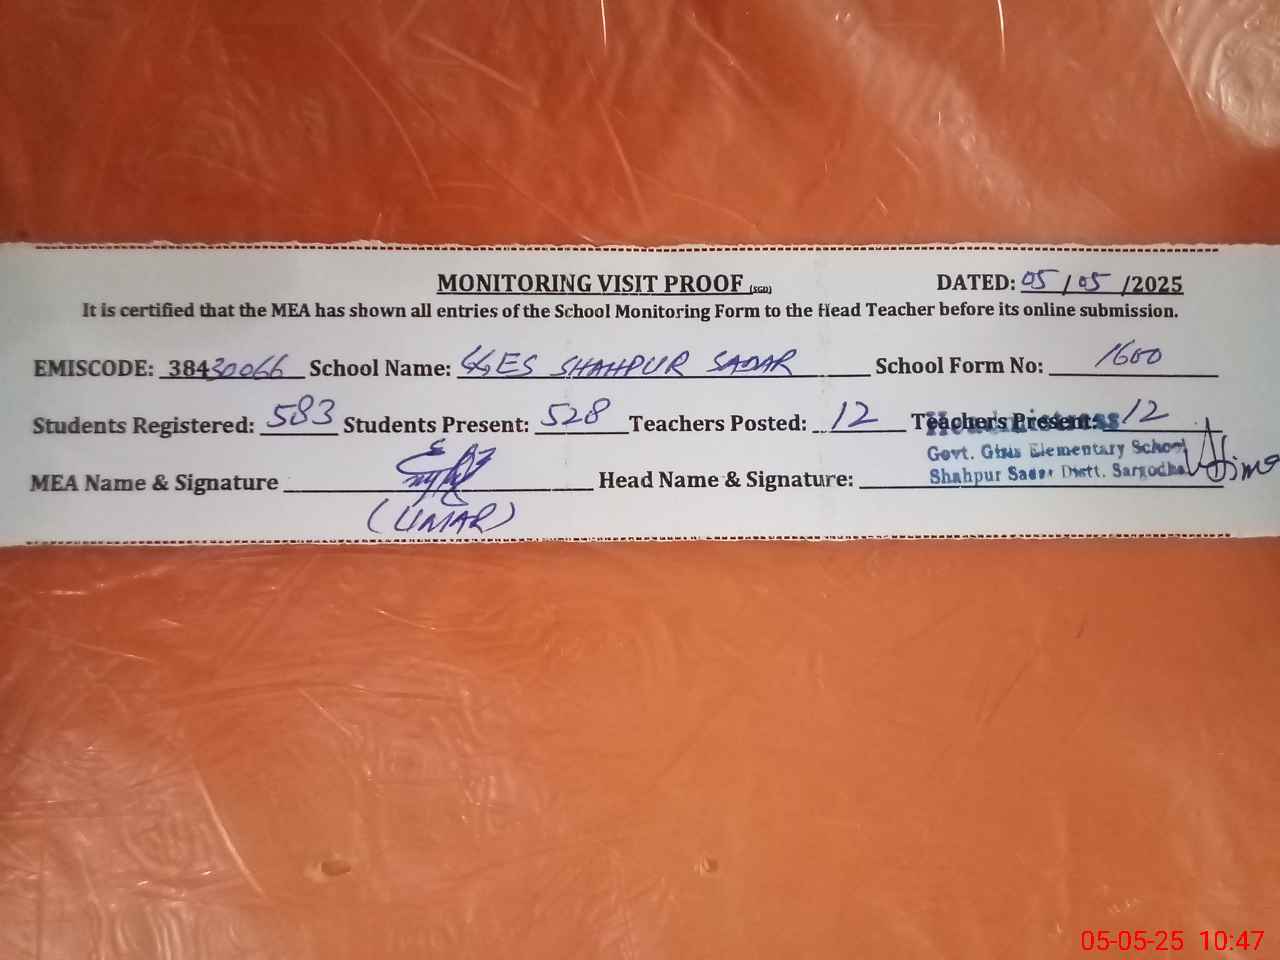 MONITORING VISIT PROOF (SGD) DATED: 05/05/2025
It is certified that the MEA has shown all entries of the School Monitoring Form to the Head Teacher before its online submission.
EMISCODE: 38430066 School Name: GGES SHAHPUR SADAR School Form No: 1600
Students Registered: 583 Students Present: 528 Teachers Posted: 12 Teachers Present: 12
Headmistress
Govt. Girls Elementary School
Shahpur Sadar Distt. Sargodha
MEA Name & Signature Head Name & Signature:
(UMAR)
05-05-25 10:47